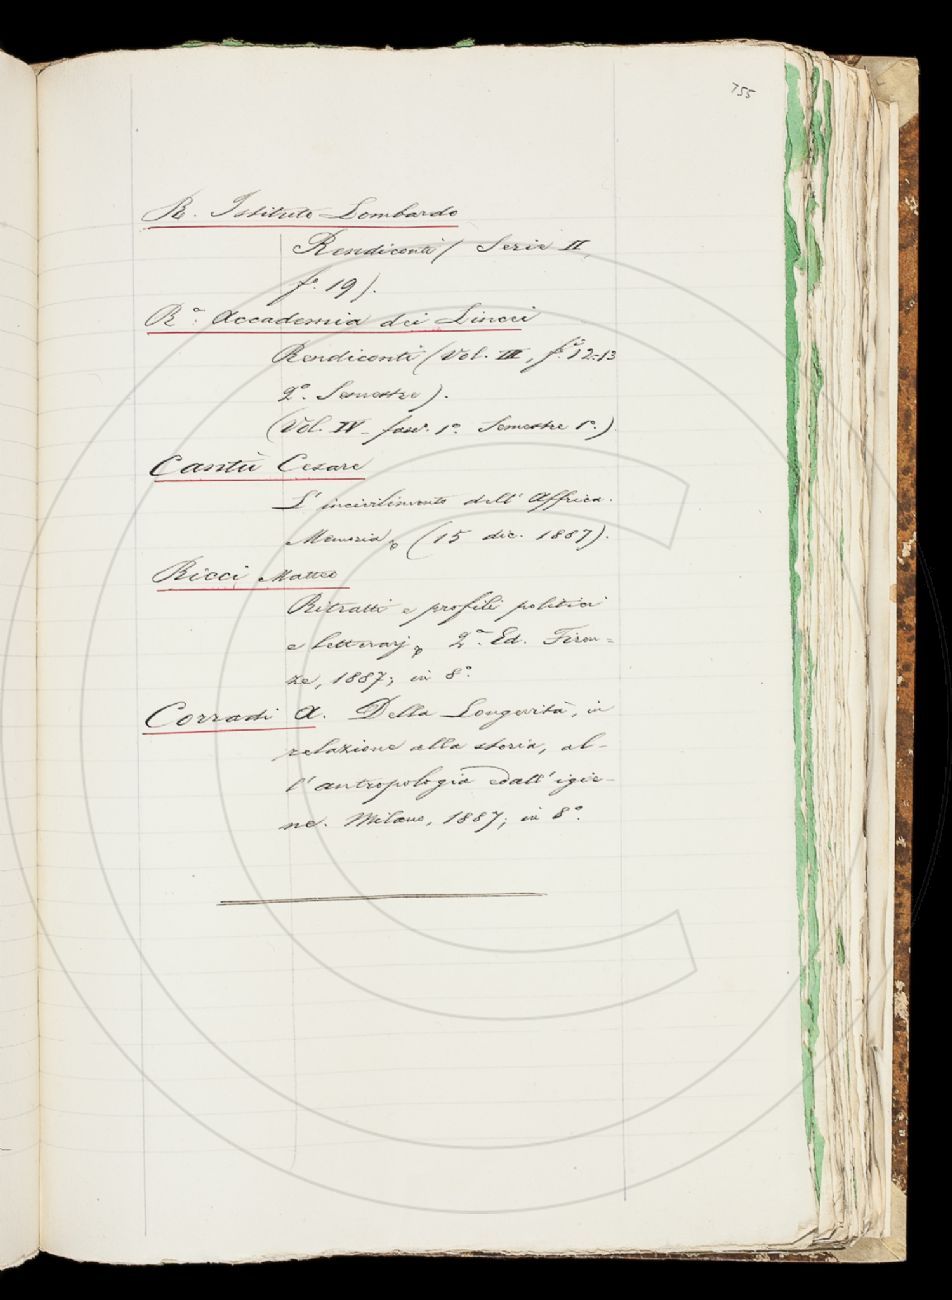 755
R. Istituto Lombardo
Rendiconti (Serie II,
f.° 19).
R.ª Accademia dei Lincei
Rendiconti (Vol. III, f.i 12-13
2°. Semestre).
(Vol. IV - fasc. 1°. Semestre 1°.)
Cantù Cesare
L' incivilimento dell' Affrica.
Memoria, (15 dic. 1887).
Ricci Matteo
Ritratti e profili politici
e letterarj, 2ª. Ed. Firen=
ze, 1887; in 8°.
Corradi A. Della Longevità, in
relazione alla storia, al-
l' antropologia ed all' igie-
ne. Milano, 1887; in 8°.